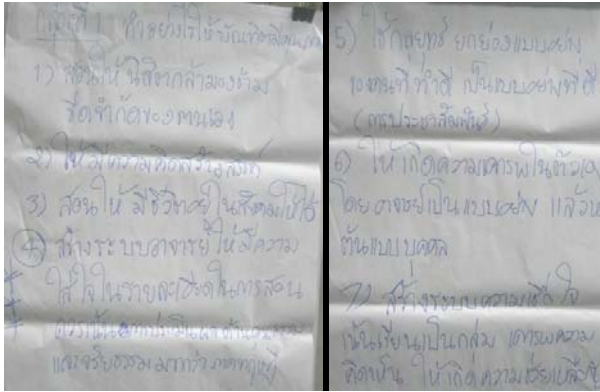 กลุ่มที่ 1 ทำอย่างไรให้บัณฑิตมี
1) สอนให้นิสิตกล้ามองข้าม
ขีดจำกัดของตนเอง
2) ให้มีความคิดสร้างสรรค์
3) สอนให้มีชีวิตอยู่ในสังคมให้ได้
4) สร้างระบบอาจารย์ให้มีความ
ใส่ใจในรายละเอียดในการสอน
และจริยธรรมมากกว่าภาคทฤษฎี
5) ใช้กลยุทธ์ ยกย่องแบบอย่าง
ของคนที่ทำดี เป็นแบบอย่างที่ดี
(การประชาสัมพันธ์)
6) ให้เกิดความเคารพในตัวเอง
โดยอาจารย์เป็นแบบอย่าง แล้วห
ต้นแบบบุคคล
7) สร้างระบบความเชื่อใจ
เน้นเรียนเป็นกลุ่ม เคารพความ
คิดเห็น ให้เกิดความช่วยเหลือ